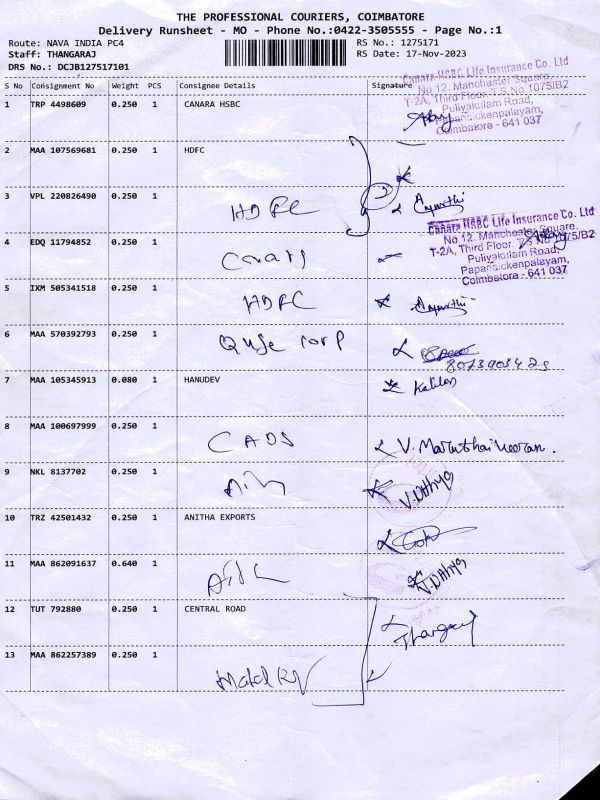 THE PROFESSIONAL COURIERS, COIMBATORE
Delivery Runsheet - MO - Phone No.:0422-3505555 - Page No.:1
Route: NAVA INDIA PC4
RS No.: 1275171
Staff: THANGARAJ
RS Date: 17-Nov-2023
DRS No.: DCJB127517101
S No Consignment No Weight PCS Consignee Details Signature
Canara HSBC Life Insurance Co. Ltd
No 12, Manchester Square,
T-2A, Third Floor, T.S.No 1075/B2
Puliyakulam Road,
Papanaickenpalayam,
Coimbatore - 641 037
1 TRP 4498609 0.250 1 CANARA HSBC
2 MAA 107569681 0.250 1 HDFC
3 VPL 220826490 0.250 1
HDFC
Canara HSBC Life Insurance Co. Ltd
No 12, Manchester Square,
T-2A, Third Floor, T.S.No 1075/B2
Puliyakulam Road,
Papanaickenpalayam,
Coimbatore - 641 037
4 EDQ 11794852 0.250 1
5 IXM 505341518 0.250 1
HDFC
6 MAA 570392793 0.250 1
corp
7 MAA 105345913 0.080 1 HANUDEV
8 MAA 100697999 0.250 1
CADS
9 NKL 8137702 0.250 1
10 TRZ 42501432 0.250 1 ANITHA EXPORTS
11 MAA 862091637 0.640 1
12 TUT 792880 0.250 1 CENTRAL ROAD
13 MAA 862257389 0.250 1